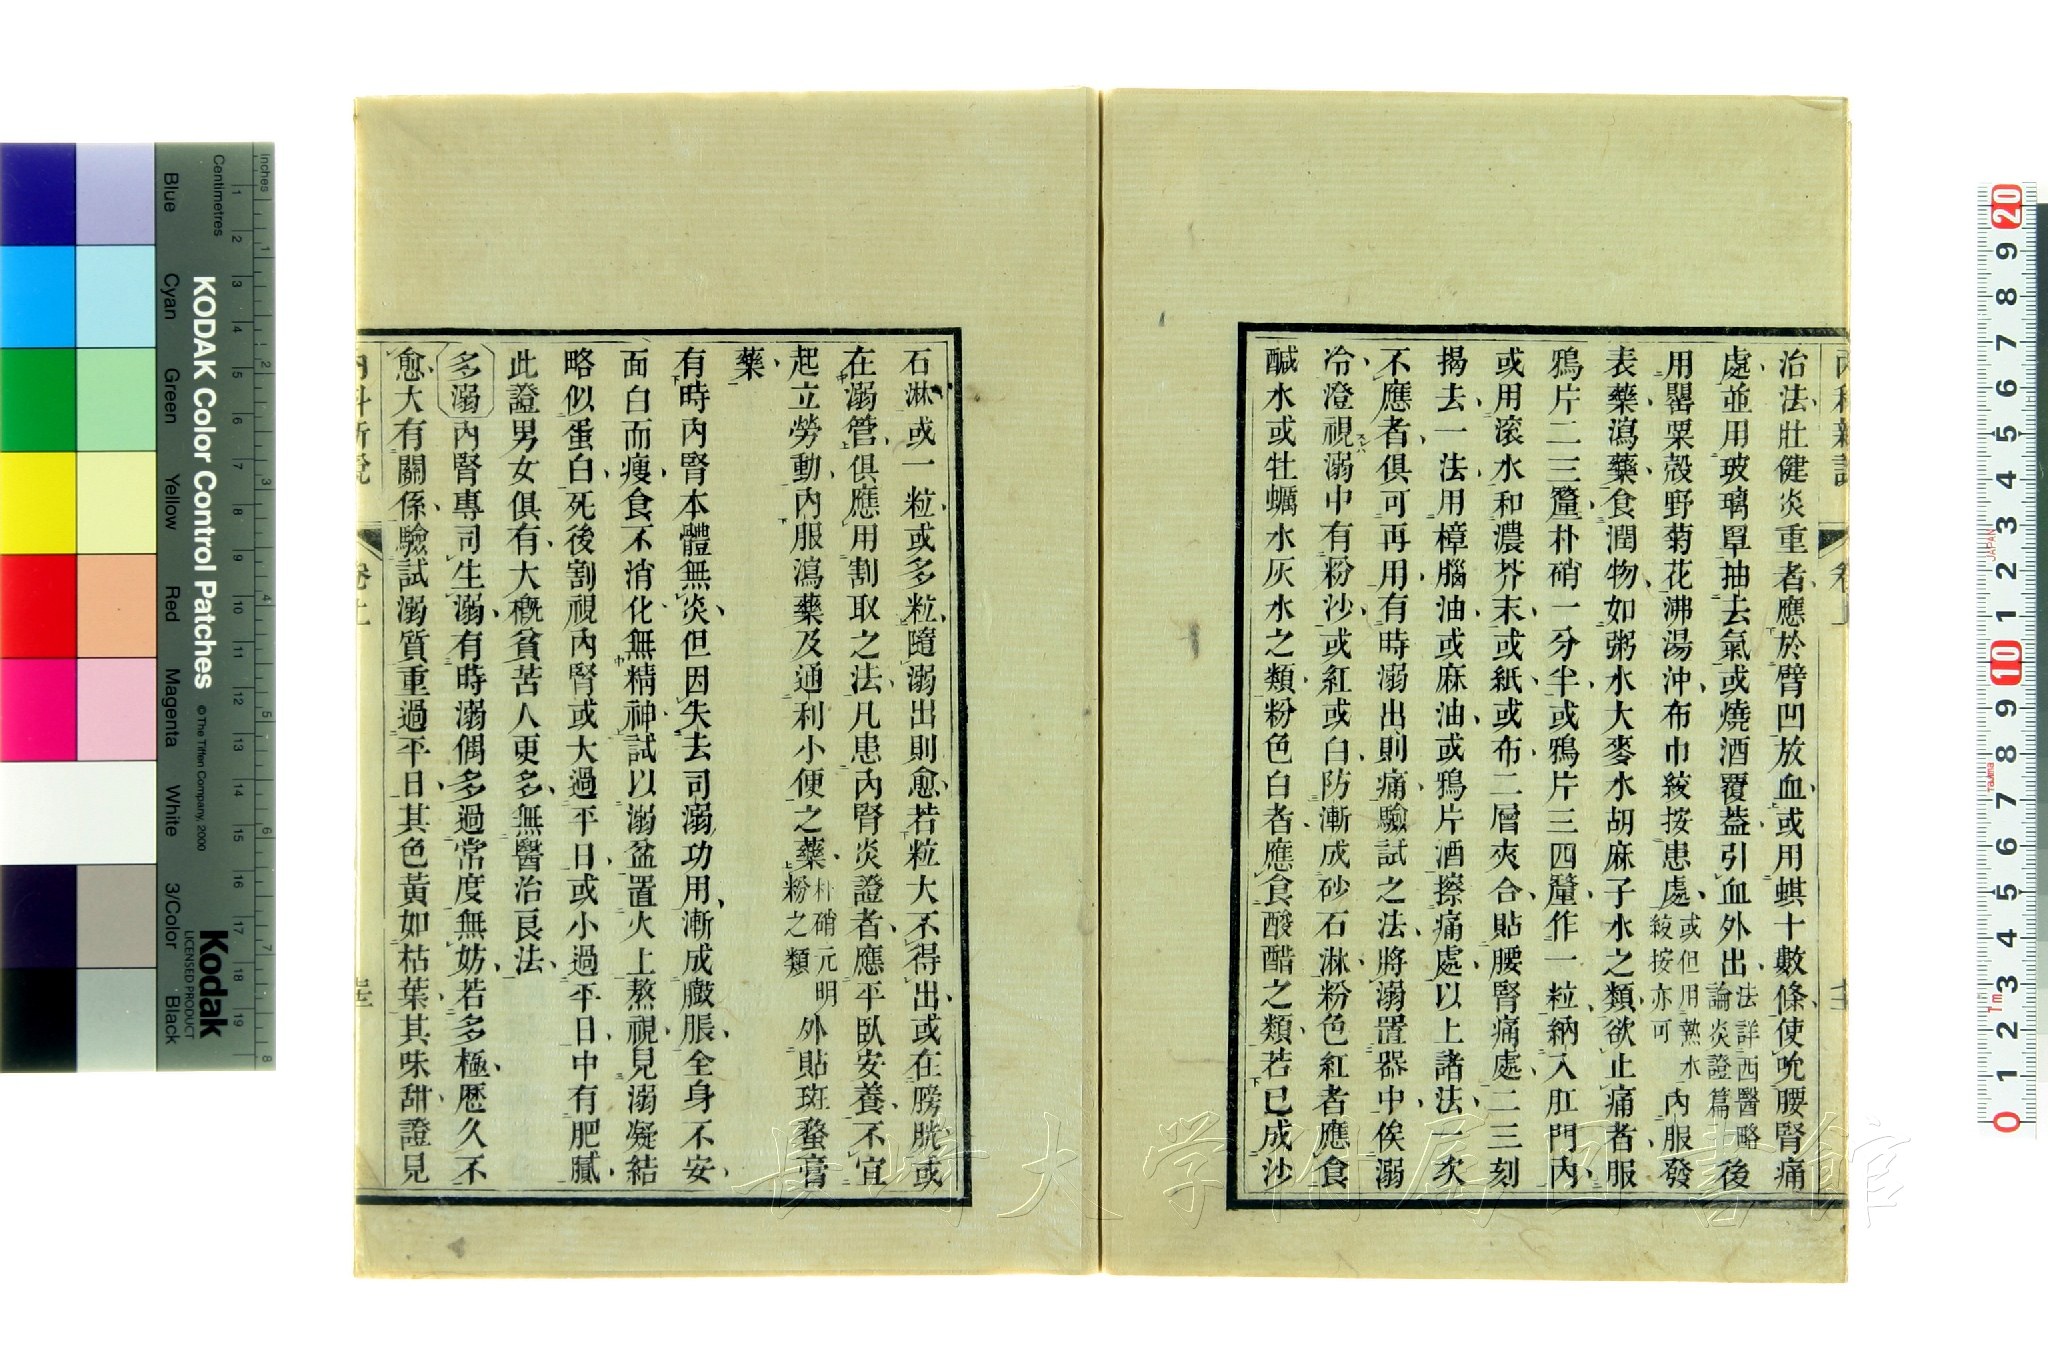 治法壯健炎重者應於臂凹放血或用蜞十數條使吮腰腎痛
處並用玻璃罩抽去氣或燒酒覆蓋引血外出法詳西醫略論炎證篇後
用罌粟殼野菊花沸湯沖布巾絞按患處或但用熱水絞按亦可內服發
表藥瀉藥食潤物如粥水大麥水胡麻子水之類欲止痛者服
鴉片二三釐朴硝一分半或鴉片三四釐作一粒納入肛門內
或用滾水和濃芥末或紙或布二層夾合貼腰腎痛處二三刻
揭去一法用樟腦油或麻油或鴉片酒擦痛處以上諸法一次
不應者俱可再用有時溺出則痛驗試之法將溺置器中俟溺
冷澄視溺中有粉沙或紅或白防漸成砂石淋粉色紅者應食
鹹水或牡蠣水灰水之類粉色白者應食酸醋之類若已成沙
石淋或一粒或多粒隨溺出則愈若粒大不得出或在膀胱或
在溺管俱應用割取之法凡患內腎炎證者應平臥安養不宜
起立勞動內服瀉藥及通利小便之藥朴硝元明粉之類外貼斑蝥膏
藥
有時內腎本體無炎但因失去司溺功用漸成臌脹全身不安
面白而瘦食不消化無精神試以溺盆置火上熬視見溺凝結
略似蛋白死後割視內腎或大過平日或小過平日中有肥膩
此證男女俱有大概貧苦人更多無醫治良法
多溺內腎專司生溺有時溺偶多過常度無妨若多極歷久不
愈大有關係驗試溺質重過平日其色黃如枯葉其味甜證見
內科新說
卷上
KODAK Color Control Patches
© The Tiffen Company, 2000
Kodak
LICENSED PRODUCT
Inches
Centimetres
Blue
Cyan
Green
Yellow
Red
Magenta
White
3/Color
Black
長崎大学附属図書館